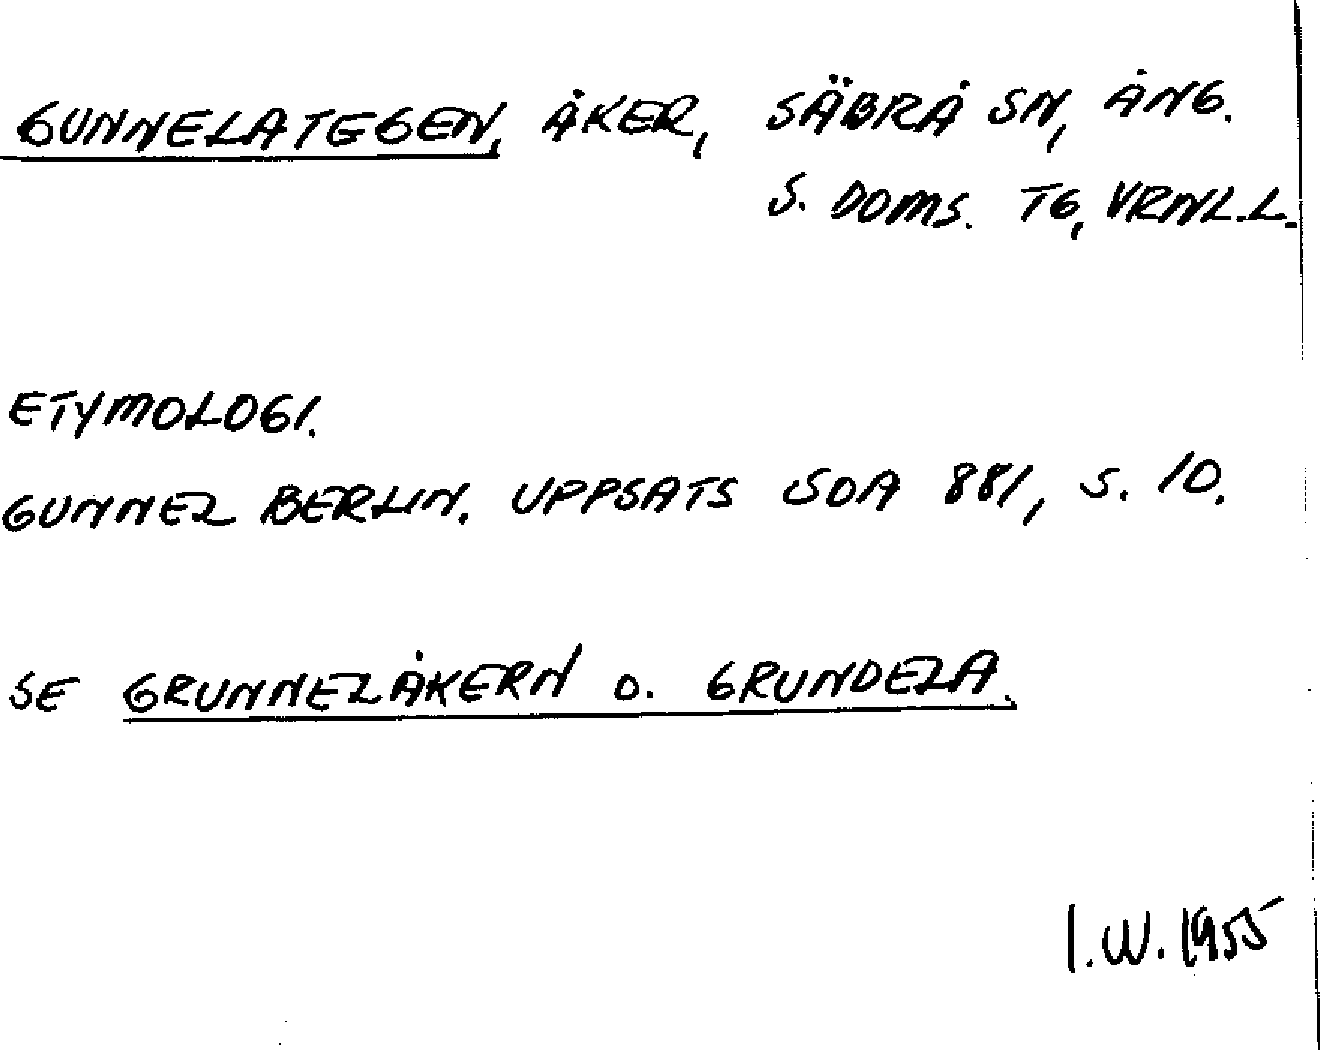 GUNNELATEGEN, ÅKER, SÄBRÅ SN, ÅNG.
S. DOMS. TG, VRNL.L.
ETYMOLOGI.
GUNNEL BERLIN. UPPSATS SOA 881, S. 10.
SE GRUNNELÅKERN O. GRUNDELA.
I.W. 1955